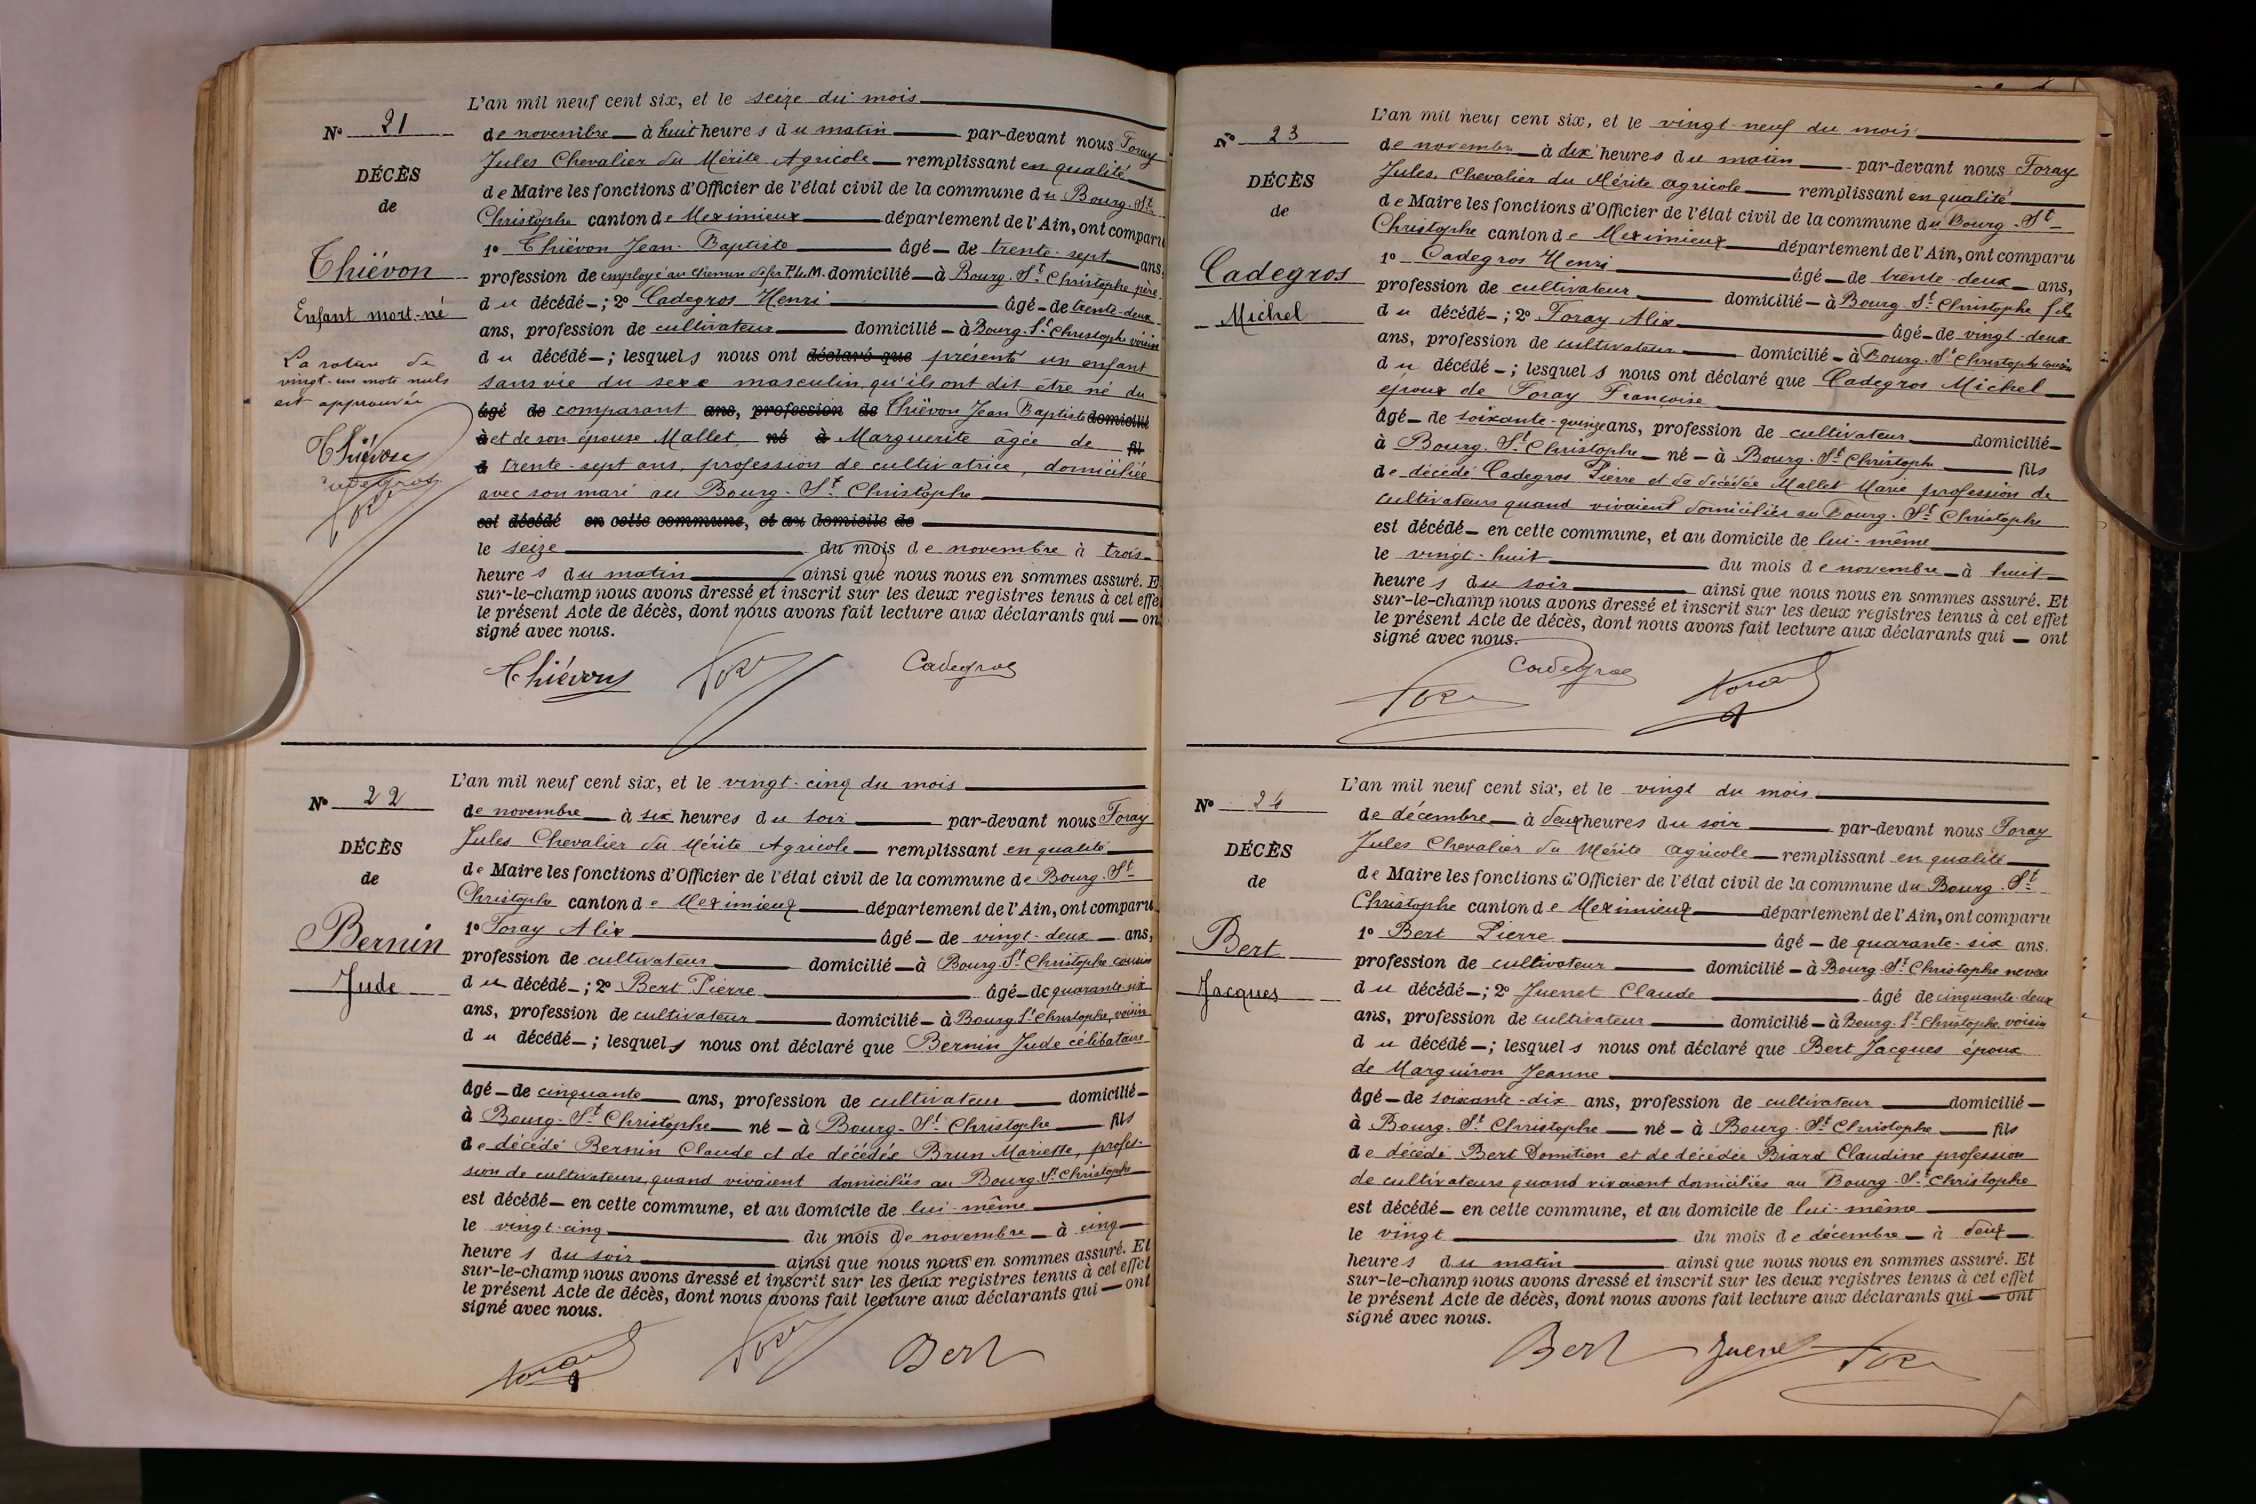 N° 21
DÉCÈS
de
Thiévon
Enfant mort-né
La rature de
vingt-un mots nuls
est approuvée
Thiévon
Cadegros
L'an mil neuf cent six, et le seize du mois
de novembre à huit heures du matin par-devant nous Foray
Jules Chevalier du Mérite Agricole remplissant en qualité
de Maire les fonctions d'Officier de l'état civil de la commune du Bourg-St-
Christophe canton de Meximieux département de l'Ain, ont comparu
1° Thiévon Jean-Baptiste âgé de trente-sept ans,
profession de employé au chemin de fer P.L.M. domicilié à Bourg-St Christophe père
du décédé ; 2° Cadegros Henri âgé de trente-deux
ans, profession de cultivateur domicilié à Bourg-St-Christophe voisin
du décédé ; lesquels nous ont déclaré que présenté un enfant
sans vie du sexe masculin, qu'ils ont dit être né du
âgé de comparant ans, profession de Thiévon Jean Baptiste domicilié
à et de son épouse Mallet, né à Marguerite âgée de fil
d trente-sept ans, profession de cultivatrice, domiciliée
avec son mari au Bourg-St Christophe
est décédé en cette commune, et au domicile de
le seize du mois de novembre à trois
heures du matin ainsi que nous nous en sommes assuré. Et
sur-le-champ nous avons dressé et inscrit sur les deux registres tenus à cet effet
le présent Acte de décès, dont nous avons fait lecture aux déclarants qui ont
signé avec nous.
Thiévon Cadegros
N° 22
DÉCÈS
de
Bernin
Jude
L'an mil neuf cent six, et le vingt-cinq du mois
de novembre à six heures du soir par-devant nous Foray
Jules Chevalier du Mérite Agricole remplissant en qualité
de Maire les fonctions d'Officier de l'état civil de la commune de Bourg-St-
Christophe canton de Meximieux département de l'Ain, ont comparu
1° Foray Alix âgé de vingt-deux ans,
profession de cultivateur domicilié à Bourg-St-Christophe cousin
du décédé ; 2° Bert Pierre âgé de quarante-six
ans, profession de cultivateur domicilié à Bourg St Christophe, voisin
du décédé ; lesquels nous ont déclaré que Bernin Jude célibataire
âgé de cinquante ans, profession de cultivateur domicilié
à Bourg-St Christophe né à Bourg-St Christophe fils
de décédé Bernin Claude et de décédée Brun Mariette, profes-
sion de cultivateurs, quand vivaient domiciliés au Bourg-St Christophe
est décédé en cette commune, et au domicile de lui-même
le vingt-cinq du mois de novembre à cinq
heures du soir ainsi que nous nous en sommes assuré. Et
sur-le-champ nous avons dressé et inscrit sur les deux registres tenus à cet effet
le présent Acte de décès, dont nous avons fait lecture aux déclarants qui ont
signé avec nous.
Bert
N° 23
DÉCÈS
de
Cadegros
Michel
L'an mil neuf cent six, et le vingt-neuf du mois
de novembre à dix heures du matin par-devant nous Foray
Jules, Chevalier du Mérite agricole remplissant en qualité
de Maire les fonctions d'Officier de l'état civil de la commune du Bourg-St-
Christophe canton de Meximieux département de l'Ain, ont comparu
1° Cadegros Henri âgé de trente-deux ans,
profession de cultivateur domicilié à Bourg St Christophe fils
du décédé ; 2° Foray Alix âgé de vingt-deux
ans, profession de cultivateur domicilié à Bourg-St Christophe cousin
du décédé ; lesquels nous ont déclaré que Cadegros Michel
époux de Foray Françoise
âgé de soixante-quinze ans, profession de cultivateur domicilié
à Bourg-St Christophe né à Bourg-St Christophe fils
de décédé Cadegros Pierre et da décédée Mallet Marie profession de
cultivateurs quand vivaient domiciliés au Bourg-St Christophe
est décédé en cette commune, et au domicile de lui-même
le vingt-huit du mois de novembre à huit
heures du soir ainsi que nous nous en sommes assuré. Et
sur-le-champ nous avons dressé et inscrit sur les deux registres tenus à cet effet
le présent Acte de décès, dont nous avons fait lecture aux déclarants qui ont
signé avec nous.
Cadegros
N° 24
DÉCÈS
de
Bert
Jacques
L'an mil neuf cent six, et le vingt du mois
de décembre à deux heures du soir par-devant nous Foray
Jules Chevalier du Mérite agricole remplissant en qualité
de Maire les fonctions d'Officier de l'état civil de la commune du Bourg-St-
Christophe canton de Meximieux département de l'Ain, ont comparu
1° Bert Pierre âgé de quarante-six ans.
profession de cultivateur domicilié à Bourg-St Christophe neveu
du décédé ; 2° Juenet Claude âgé de cinquante-deux
ans, profession de cultivateur domicilié à Bourg-St Christophe voisin
du décédé ; lesquels nous ont déclaré que Bert Jacques époux
de Marguiron Jeanne
âgé de soixante-dix ans, profession de cultivateur domicilié
à Bourg-St Christophe né à Bourg-St Christophe fils
de décédé Bert Domitien et de décédée Biard Claudine profession
de cultivateurs quand vivaient domiciliés au Bourg-St Christophe
est décédé en cette commune, et au domicile de lui-même
le vingt du mois de décembre à deux
heures du matin ainsi que nous nous en sommes assuré. Et
sur-le-champ nous avons dressé et inscrit sur les deux registres tenus à cet effet
le présent Acte de décès, dont nous avons fait lecture aux déclarants qui ont
signé avec nous.
Bert Juenet